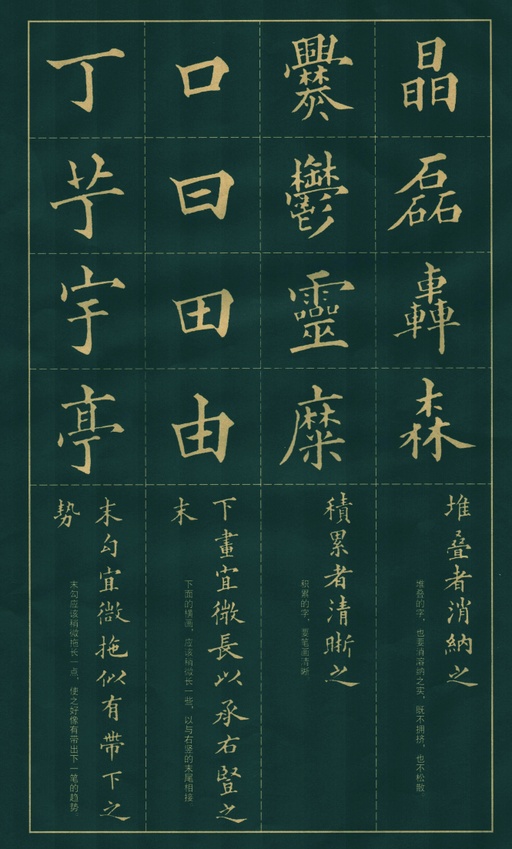 晶
磊
轟
森
堆疊者消納之
堆叠的字，也要消溶纳之实，既不拥挤，也不松散。
爨
鬱
靈
糜
積累者清晰之
积累的字，要笔画清晰
口
曰
田
由
下畫宜微長以承右豎之
末
下面的横画，应该稍微长一些，以与右竖的末尾相接
丁
芋
宇
亭
末勾宜微拖似有帶下之
勢
末勾应该稍微拖长一点，使之好像有带出下一笔的趋势